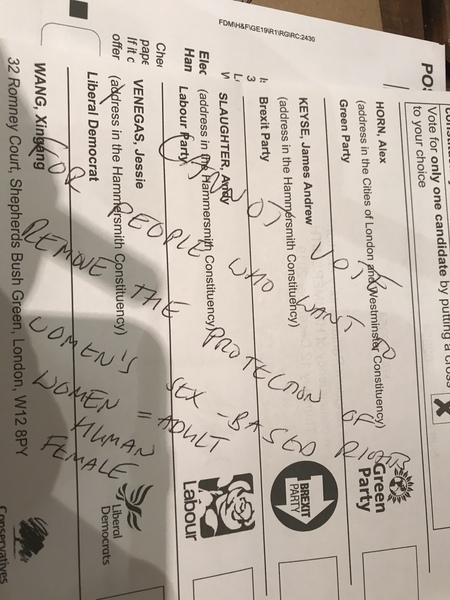 FDM\H&F\GE19\R1\RG\RC:2430
Vote for only one candidate by putting a cross
to your choice
HORN, Alex
(address in the Cities of London and Westminster Constituency)
Green Party
Green
Party
KEYSE, James Andrew
(address in the Hammersmith Constituency)
Brexit Party
BREXIT
PARTY
SLAUGHTER, Andy
(address in the Hammersmith Constituency)
Labour Party
Labour
VENEGAS, Jessie
(address in the Hammersmith Constituency)
Liberal Democrat
Liberal
Democrats
WANG, Xingang
32 Romney Court, Shepherds Bush Green, London, W12 8PY
Conservatives
CANNOT VOTE
FOR PEOPLE WHO WANT TO
REMOVE THE PROTECTION OF
WOMEN'S SEX-BASED RIGHTS
WOMEN = ADULT
HUMAN
FEMALE